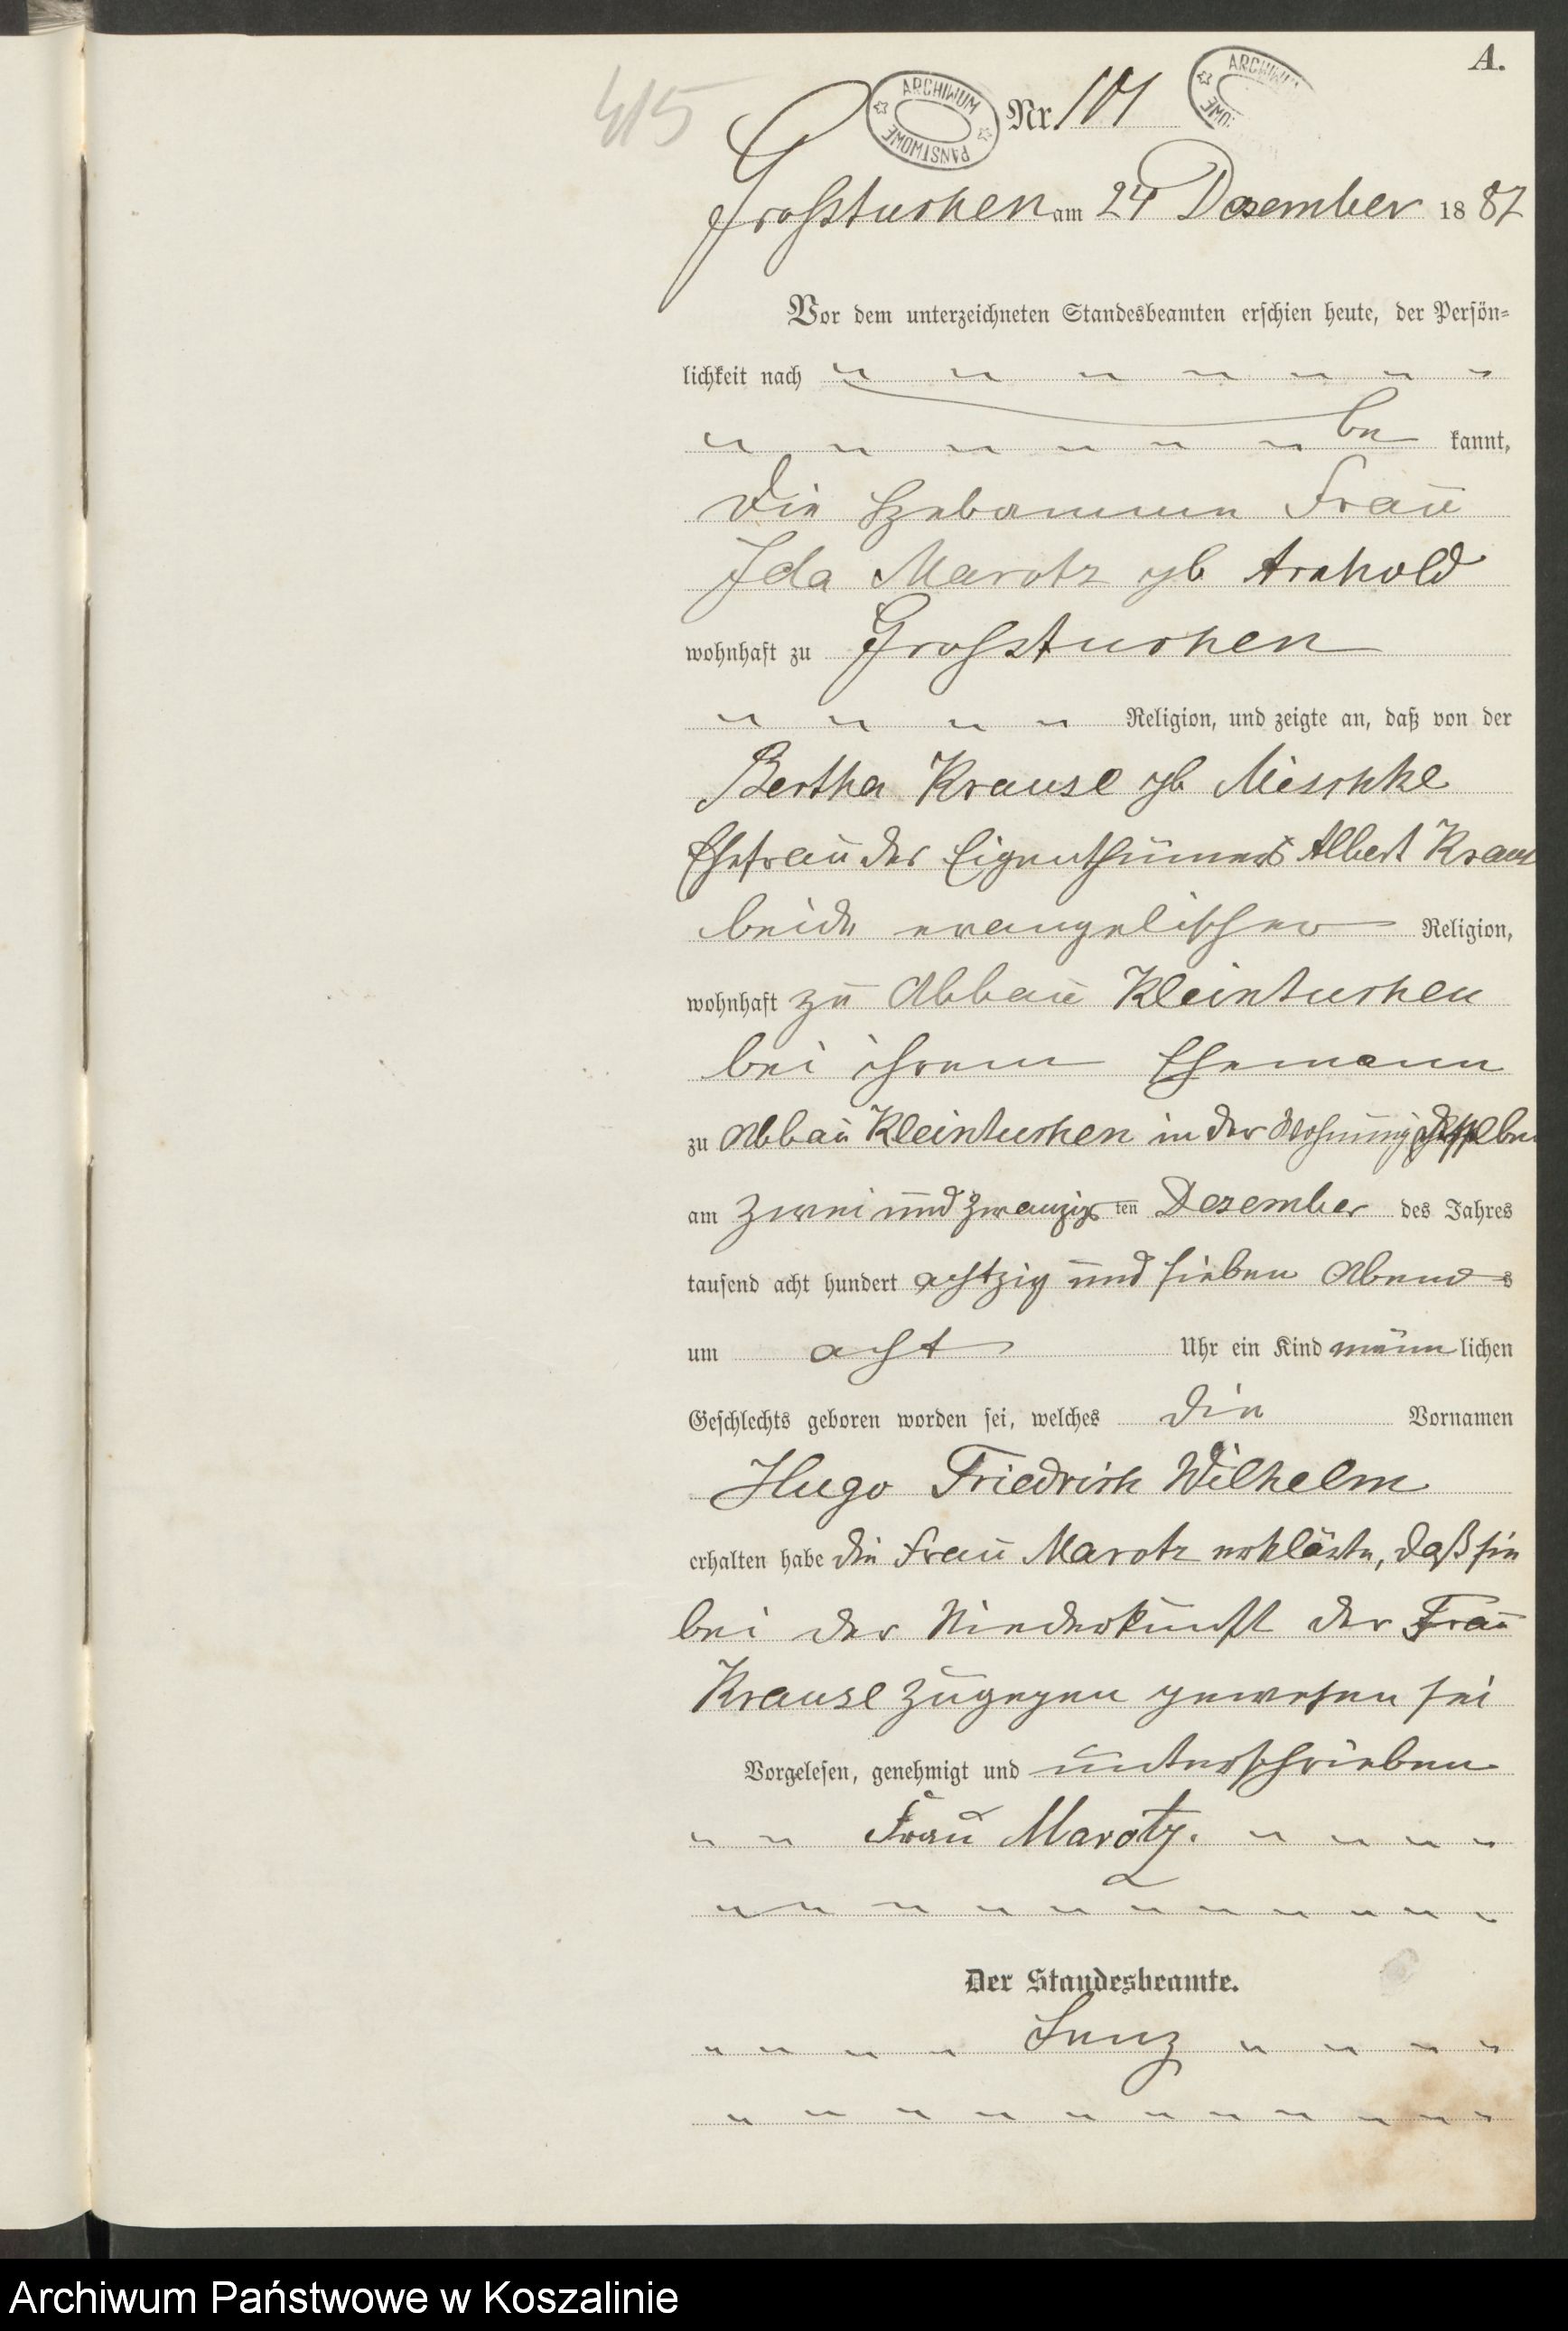 A.
415
ARCHIWUM PAŃSTWOWE
Nr 101
ARCHIWUM
Großtuchen am 24 Dezember 1887
Vor dem unterzeichneten Standesbeamten erschien heute, der Persön-
lichkeit nach
be kannt,
die Hebamme Frau
Ida Marotz gb Arnhold
wohnhaft zu Großtuchen
Religion, und zeigte an, daß von der
Bertha Krause gb Mischke
Ehefrau des Eigenthümers Albert Krause
beide evangelischer Religion,
wohnhaft zu Abbau Kleintuchen
bei ihrem Ehemann
zu Abbau Kleintuchen in der Wohnung desselben
am zwei und zwanzigs ten Dezember des Jahres
tausend acht hundert achtzig und sieben Abends
um acht Uhr ein Kind männ lichen
Geschlechts geboren worden sei, welches die Vornamen
Hugo Friedrich Wilhelm
erhalten habe die Frau Marotz erklärte, daß sie
bei der Niederkunft der Frau
Krause zugegen gewesen sei
Vorgelesen, genehmigt und unterschrieben
Frau Marotz.
Der Standesbeamte.
Lenz
Archiwum Państwowe w Koszalinie